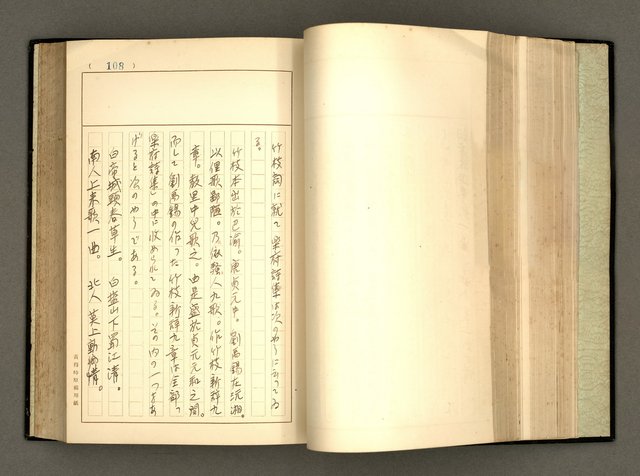 (108)
竹枝詞に就て楽府詩集は次のやうに云つてゐ
る。
竹枝本出於巴渝。唐貞元中。劉禹錫在沅湘。
以俚歌鄙陋。乃依騒人九歌。作竹枝新辞九
章。教里中児歌之。由是盛於貞元元和之間。
而して劉禹錫の作つた竹枝新辞九章は全部つ
楽府詩集」の中に収められてゐる。その内の一つをあ
げると次のやうである。
白帝城頭春草生。 白塩山下蜀江清。
南人上来歌一曲。 北人莫上動郷情。
原稿用紙